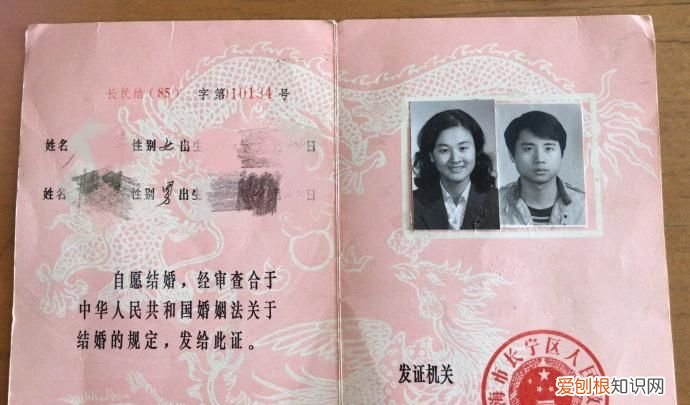 长民结(85) 字第010134号
姓名 性别 女 出生 日
姓名 性别 男 出生 日
自愿结婚，经审查合于
中华人民共和国婚姻法关于
结婚的规定，发给此证。
发证机关
海市长宁区人民政
爱刨根知识网